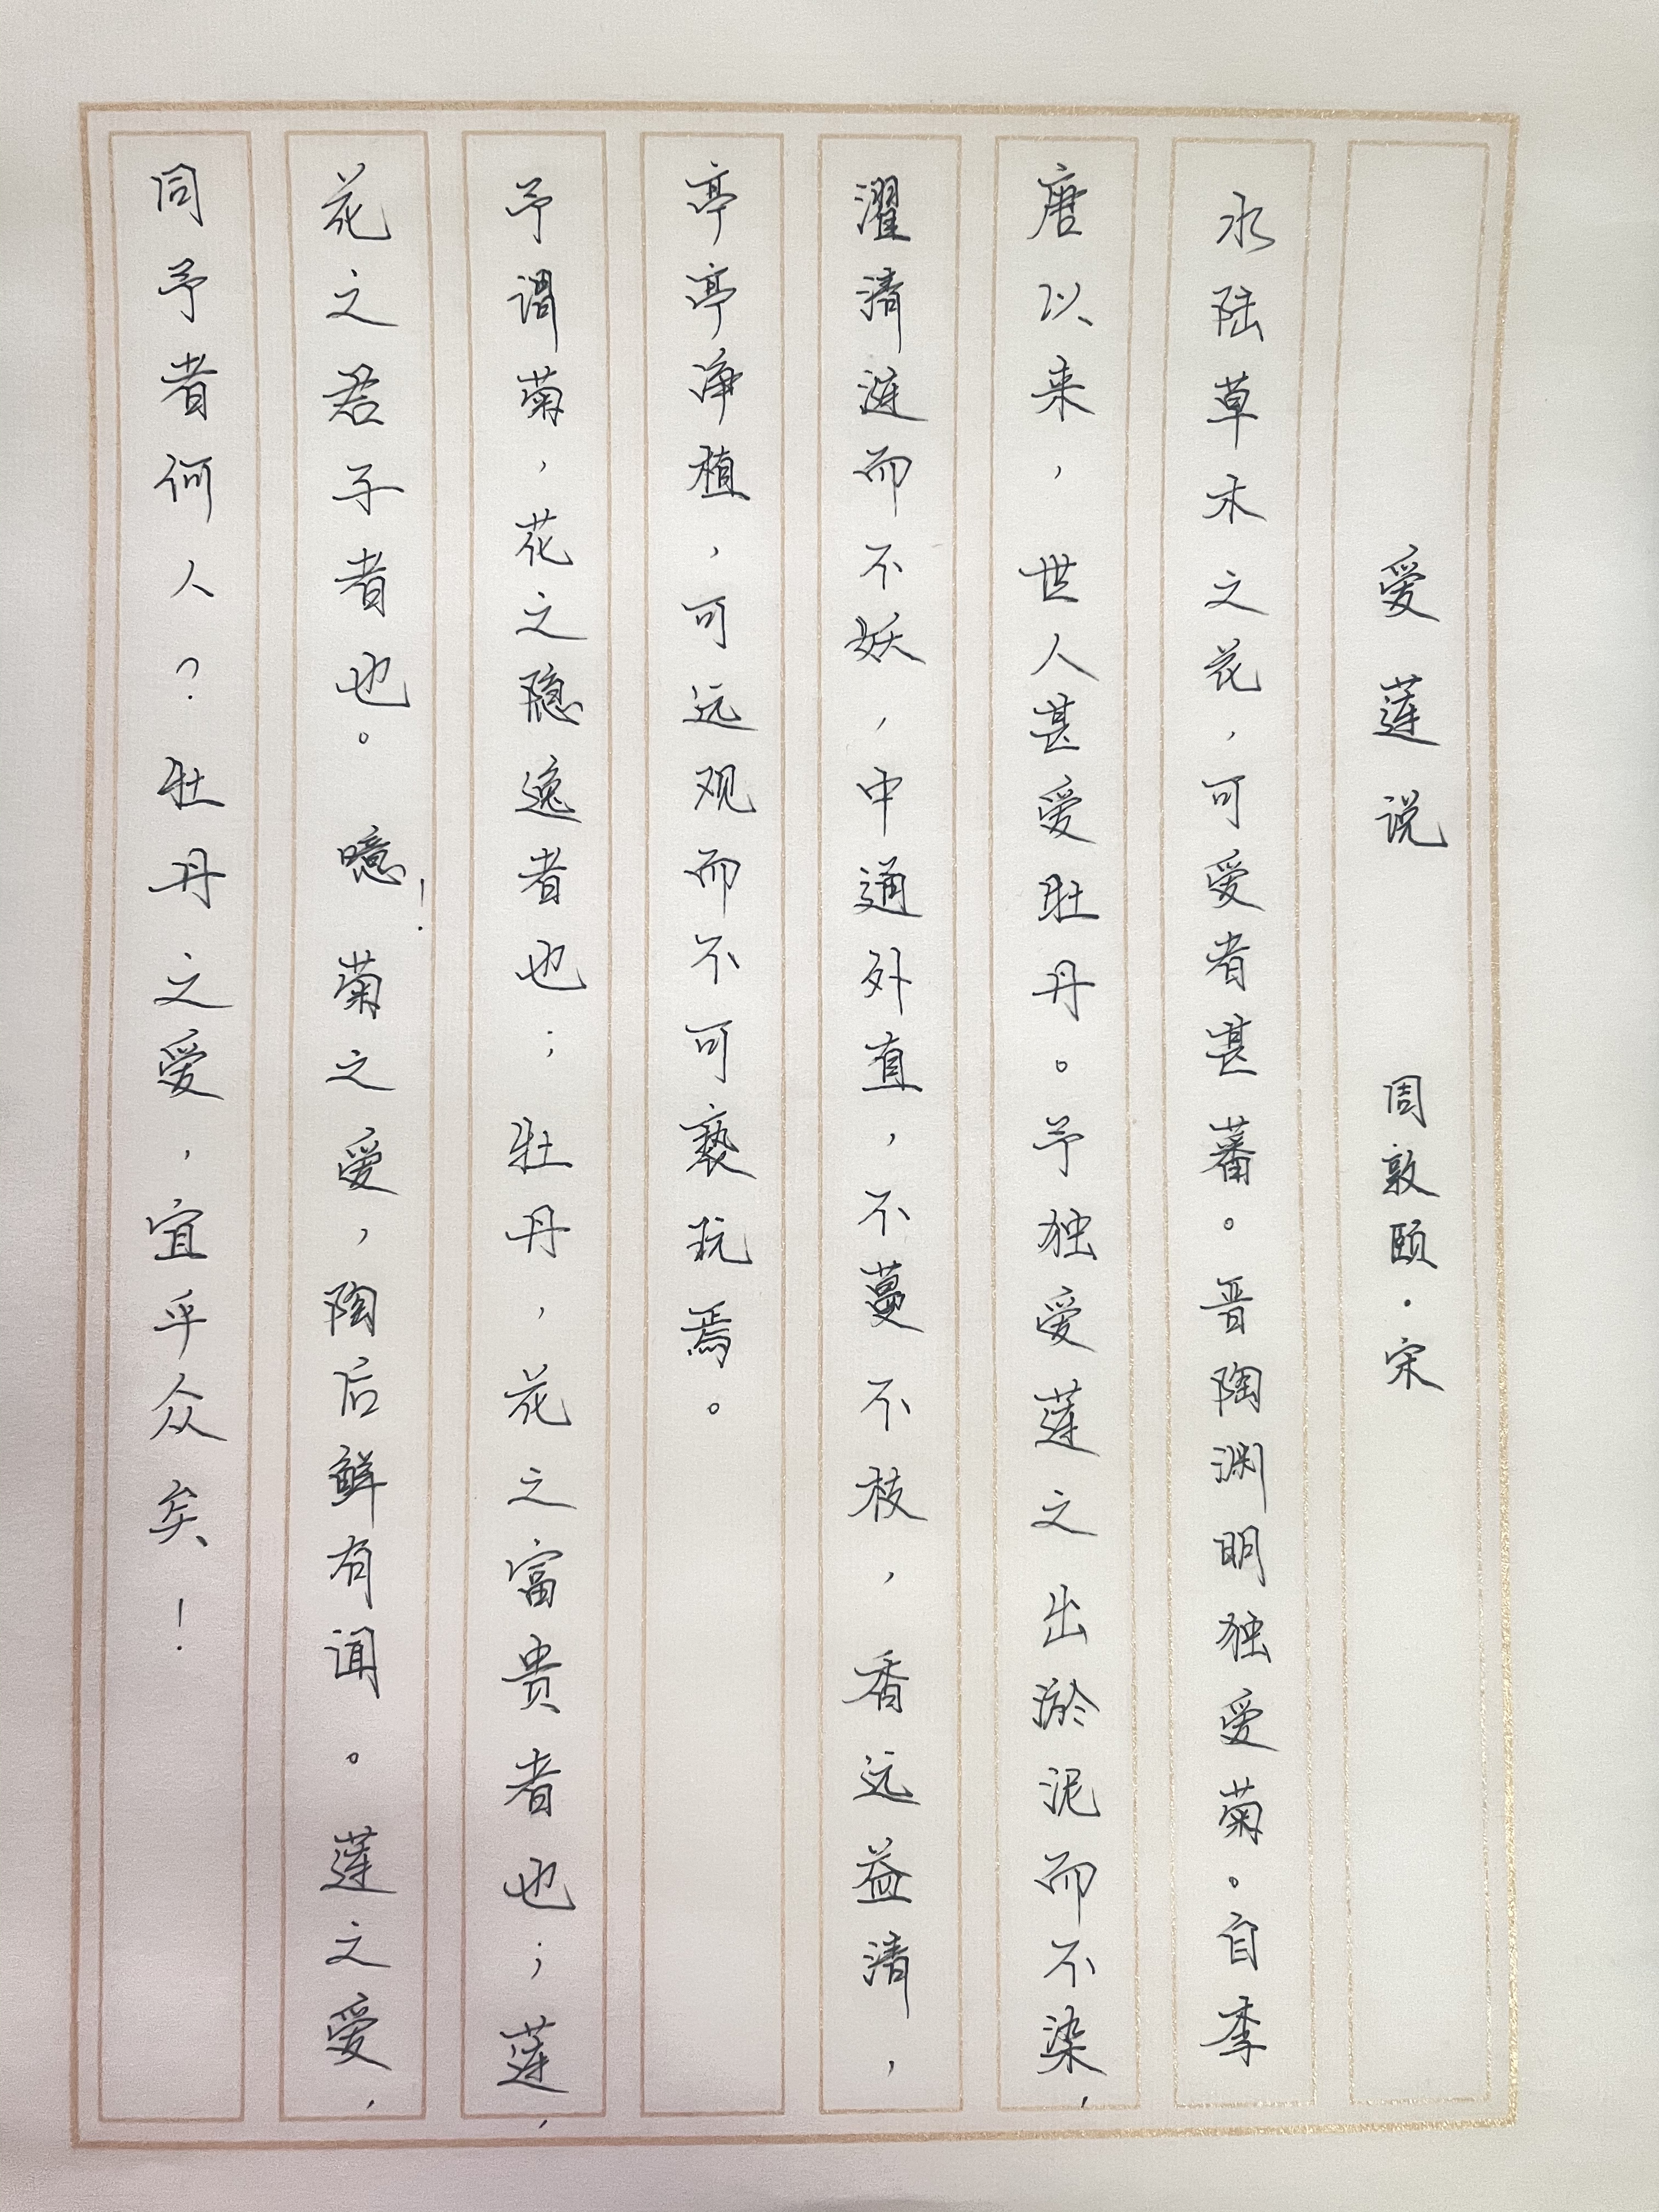 爱莲说 周敦颐·宋
水陆草木之花，可爱者甚蕃。晋陶渊明独爱菊。自李
唐以来，世人甚爱牡丹。予独爱莲之出淤泥而不染，
濯清涟而不妖，中通外直，不蔓不枝，香远益清，
亭亭净植，可远观而不可亵玩焉。
予谓菊，花之隐逸者也；牡丹，花之富贵者也；莲，
花之君子者也。噫！菊之爱，陶后鲜有闻。莲之爱，
同予者何人？牡丹之爱，宜乎众矣！